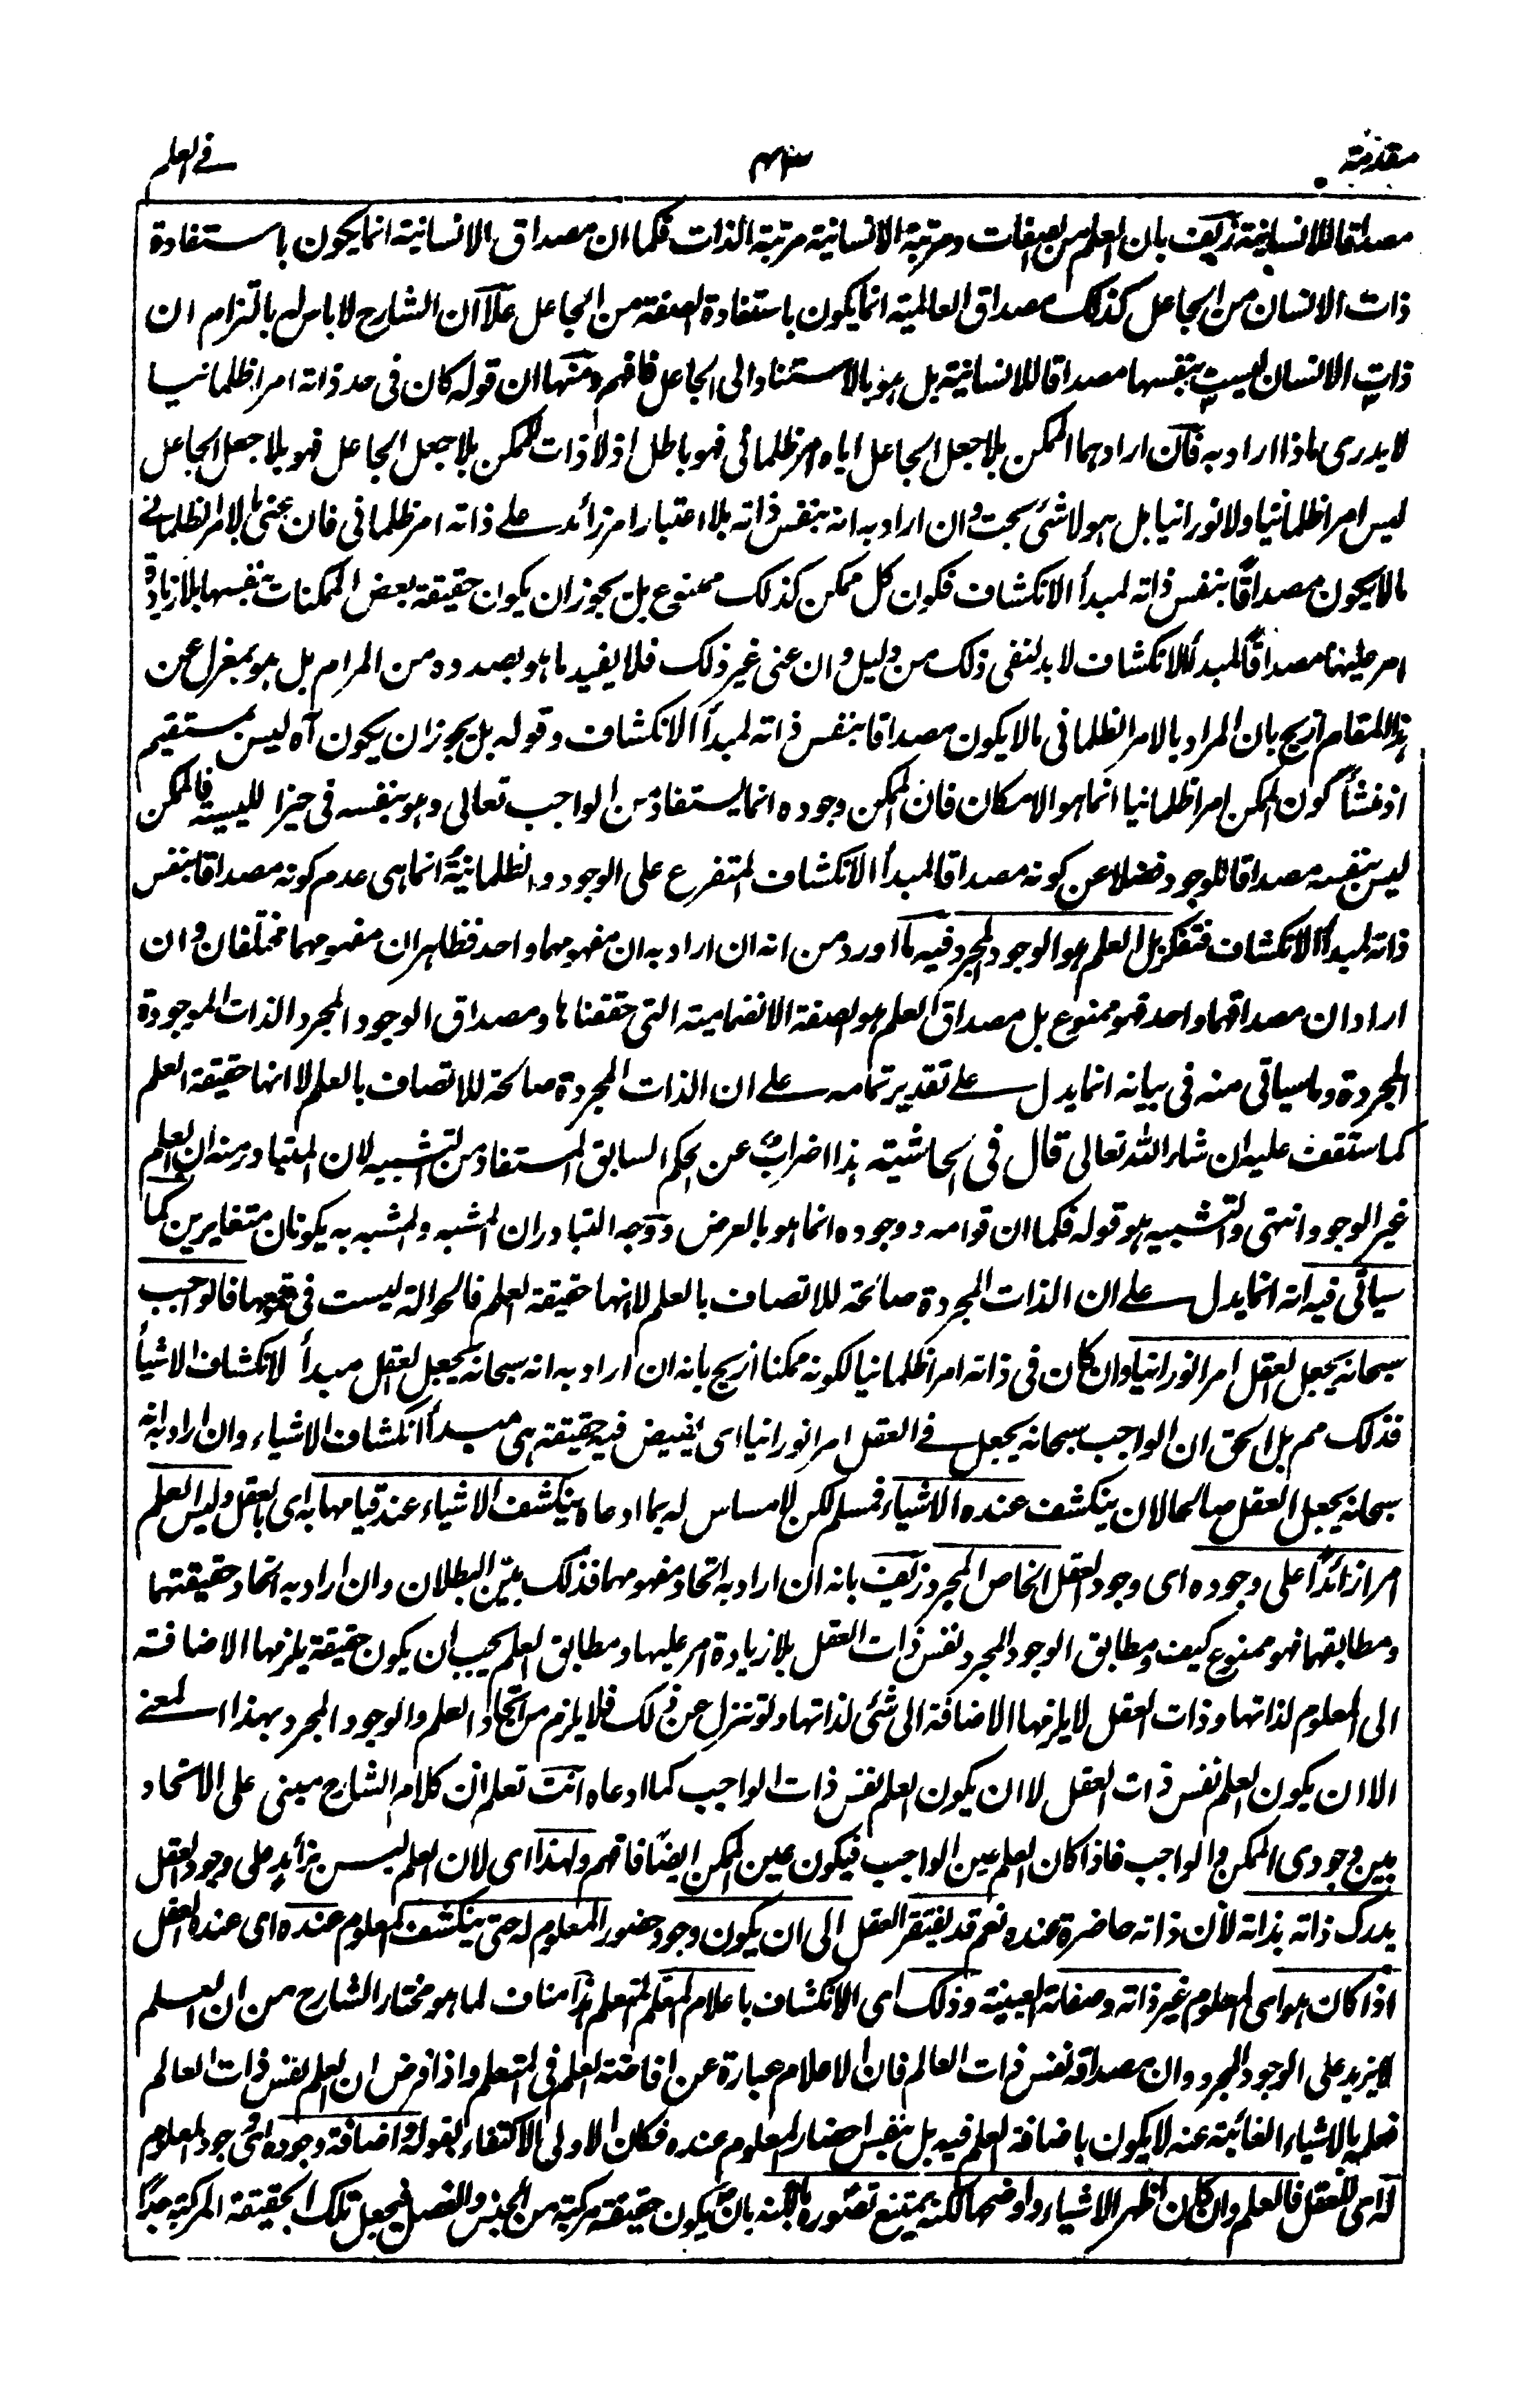 مقدمة
في العلم
مصداقا للانسانية زيف بان العلم من الصفات ومرتبة الانسانية مرتبة الذات فكما ان مصداق الانسانية انما يكون باستفادة
ذات الانسان من الجاعل كذلك مصداق العالمية انما يكون باستفادة الصفة من الجاعل علا ان الشارح لا باس له بالتزام ان
ذات الانسان ليست بنفسها مصداقا للانسانية بل هو بالاستناد الى الجاعل فافهم ومنها ان قوله كان فى حد ذاته امرا ظلمانيا
لا يدرى ماذا اراد به فان اراد بها الممكن بلا جعل الجاعل اياه امر ظلمانى فهو باطل اذ لا ذات للممكن بلا جعل الجاعل فهو بلا جعل الجاعل
ليس امرا ظلمانيا ولا نورانيا بل هو لا شئ بحت وان اراد به انه بنفس ذاته بلا اعتبار امر زائد على ذاته امر ظلمانى فان عنى بالامر الظلمانے
ما لا يكون مصداقا بنفس ذاته لمبدأ الانكشاف فكون كل ممكن كذلك ممنوع بل يجوز ان يكون حقيقة بعض الممكنات بنفسها بلا زيادة
امر عليها مصداقا لمبدأ الانكشاف لا بد لنفى ذلك من دليل وان عنى غير ذلك فلا يفيد ما هو بصدده من المرام بل هو بمعزل عن
هذا المقام ازيح بان المراد بالامر الظلمانى ما لا يكون مصداقا بنفس ذاته لمبدأ الانكشاف وقوله بل يجوز ان يكون آه ليس بمستقيم
اذ منشأ كون الممكن امرا ظلمانيا انما هو الامكان فان الممكن وجوده انما يستفاد من الواجب تعالى وهو بنفسه فى حيز الليسية فالممكن
ليس بنفسه مصداقا للوجود فضلا عن كونه مصداقا لمبدأ الانكشاف المتفرع على الوجود والظلمانية انما هى عدم كونه مصداقا بنفس
ذاته لمبدأ الانكشاف فتفكر بل العلم هو الوجود المجرد فيه ما اورد من انه ان اراد به ان مفهومهما واحد فظاهر ان مفهومهما مختلفان وان
اراد ان مصداقهما واحد فهو ممنوع بل مصداق العلم هو الصفة الانضمامية التى حققناها ومصداق الوجود المجرد الذات الموجودة
المجردة وما سياتى منه فى بيانه انما يدل على تقدير تمامه على ان الذات المجردة صالحة للاتصاف بالعلم لا انها حقيقة العلم
كما ستقف عليه ان شاء الله تعالى قال فى الحاشية هذا اضراب عن الحكم السابق المستفاد من التشبيه لان المتبادر منه ان العلم
غير الوجود انتهى والتشبيه هو قوله فكما ان قوامه ووجوده انما هو بالعرض ووجه التبادر ان المشبه والمشبه به يكونان متغايرين كما
سيأتى فيه انه انما يدل على ان الذات المجردة صالحة للاتصاف بالعلم لا انها حقيقة العلم فالحوالة ليست فى موقعها فالواجب
سبحانه يجعل العقل امرا نورانيا وان كان فى ذاته امرا ظلمانيا لكونه ممكنا ازيح بانه ان اراد به انه سبحانه يجعل العقل مبدأ لانكشاف الاشيا
فذلك مم بل الحق ان الواجب سبحانه يجعل فى العقل امرا نورانيا اى يفيض فيه حقيقة هى مبدأ انكشاف الاشياء وان اراد انه
سبحانه يجعل العقل صالحا لان ينكشف عنده الاشياء فمسلم لكن لا مساس له بما ادعاه ينكشف الاشياء عند قيامها به اى بالعقل وليس العلم
امرا زائدا على وجوده اى وجود العقل الخاص المجرد زيف بانه ان اراد به اتحاد مفهومهما فذلك بين البطلان وان اراد به اتحاد حقيقتهما
ومطابقهما فهو ممنوع كيف ومطابق الوجود المجرد نفس ذات العقل بلا زيادة امر عليها ومطابق العلم يجب ان يكون حقيقة يلزمها الاضافة
الى المعلوم لذاتها وذات العقل لا يلزمها الاضافة الى شئ لذاتها ولو تنزل عن ذلك فلا يلزم من اتحاد العلم والوجود المجرد بهذا المعنے
الا ان يكون العلم نفس ذات العقل لا ان يكون العلم نفس ذات الواجب كما ادعاه انت تعلم ان كلام الشارح مبنى على الاتحاد
بين وجودى الممكن والواجب فاذا كان العلم عين الواجب فيكون عين الممكن ايضا فافهم ولهذا اى لان العلم ليس بزائد على وجود العقل
يدرك ذاته بذاته لان ذاته حاضرة عنده نعم قد يفتقر العقل الى ان يكون وجود حضور المعلوم له حتى ينكشف المعلوم عنده اى عند العقل
اذا كان هو اى المعلوم غير ذاته وصفاته العينية وذلك اى الانكشاف باعلام المعلم المتعلم هذا مناف لما هو مختار الشارح من ان العلم
لا يزيد على الوجود المجرد وان مصداقه نفس ذات العالم فان الاعلام عبارة عن افاضة العلم فى المتعلم واذا فرض ان العلم نفس ذات العالم
فعلمه بالاشياء الغائبة عنه لا يكون باضافة العلم فيه بل بنفس احضار المعلوم عنده فكان الاولى الاكتفاء بقوله واضافة وجوده اى وجود المعلوم
له اى للعقل فالعلم وان كان اظهر الاشياء واوضحها لكنه يمتنع تصوره بالكنه بان يكون حقيقة مركبة من الجنس والفصل فيجعل تلك الحقيقة المركبة حدا